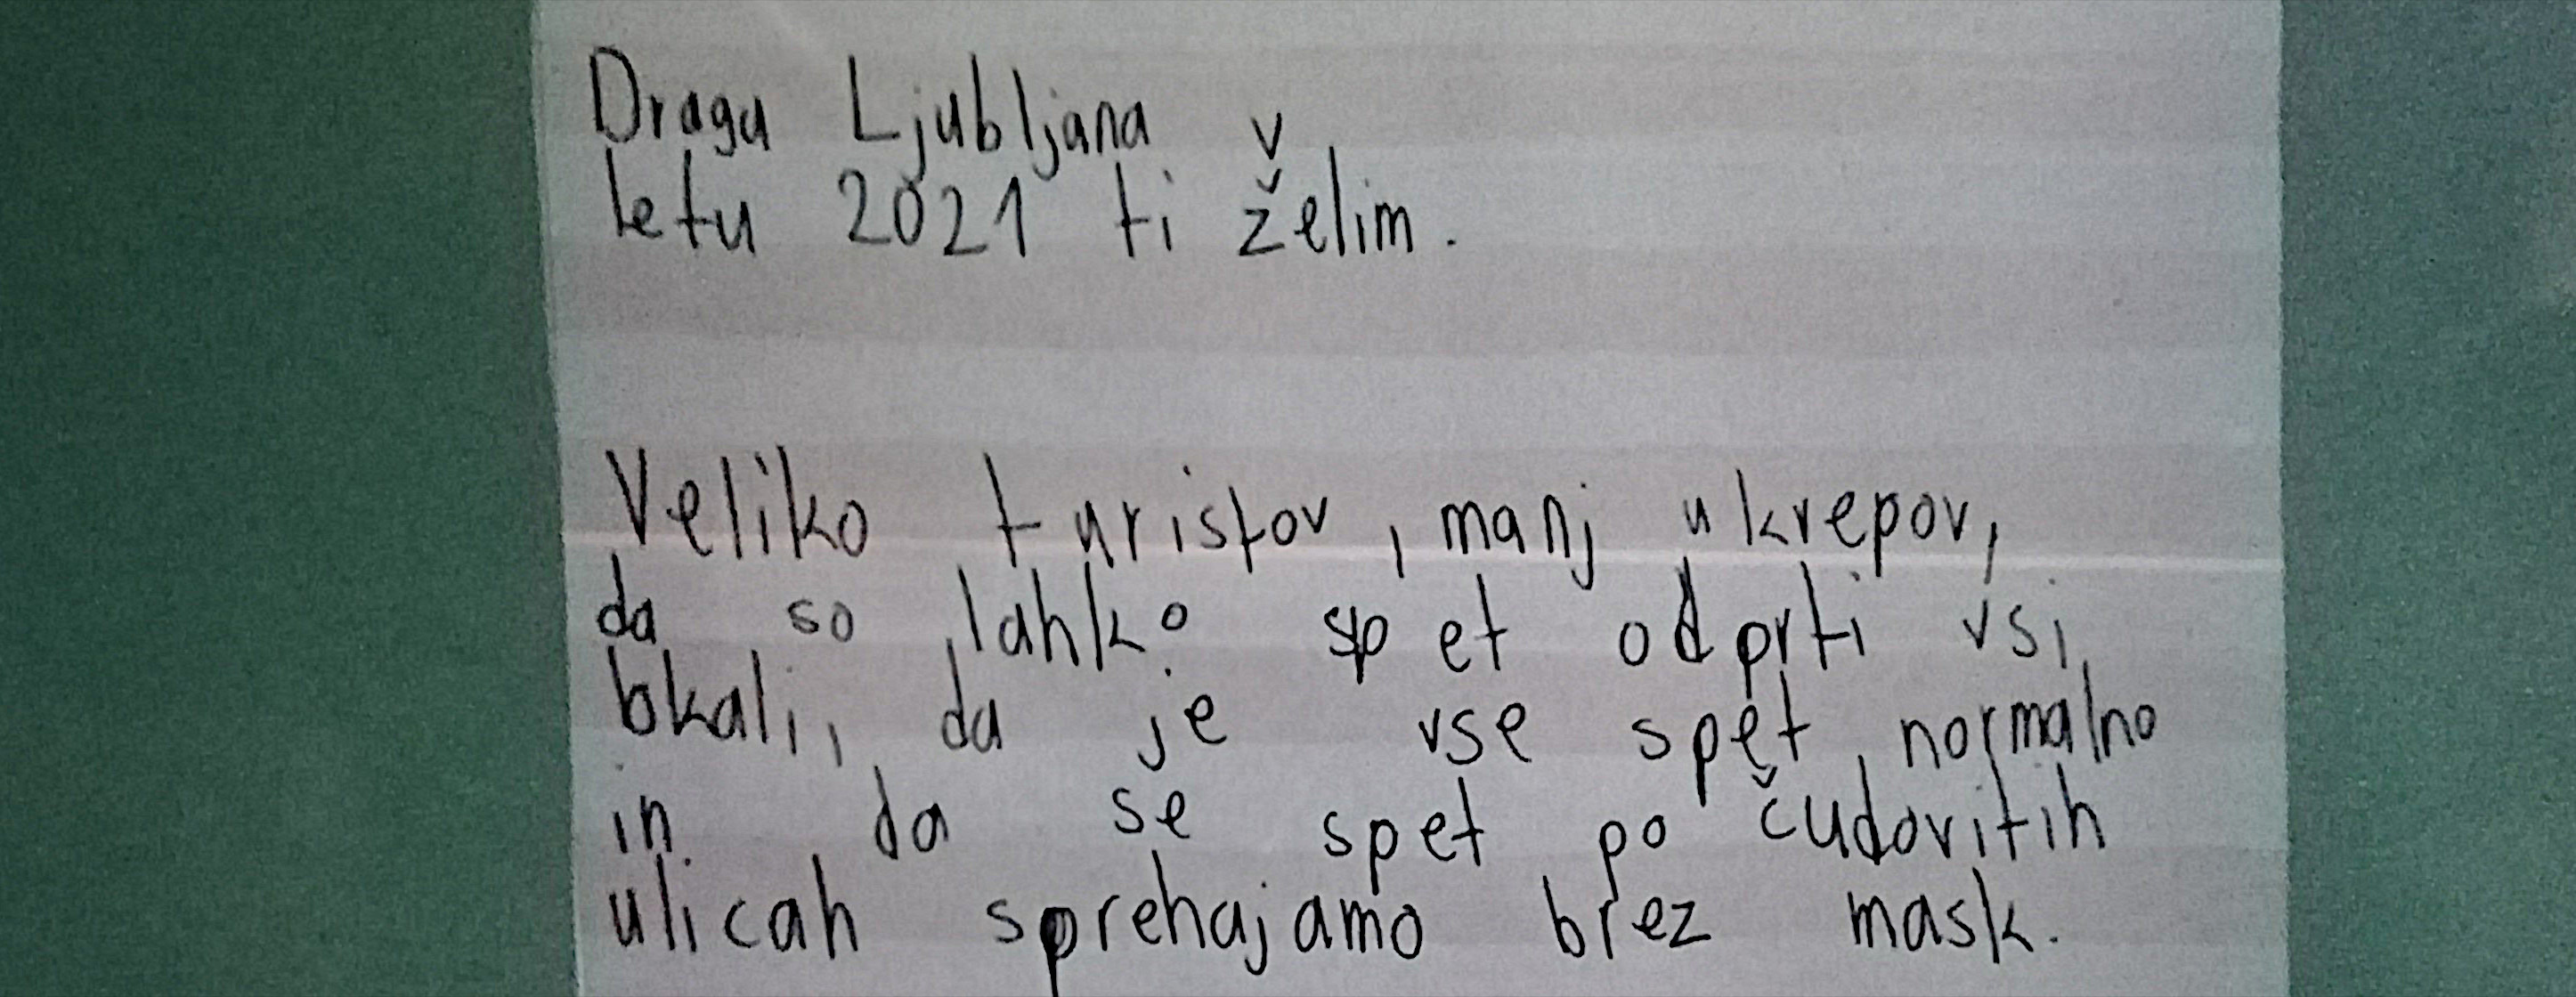 Draga Ljubljana v
letu 2021 ti želim.
Veliko turistov, manj ukrepov,
da so lahko spet odprti vsi
lokali, da je vse spet normalno
in da se spet po čudovitih
ulicah sprehajamo brez mask.